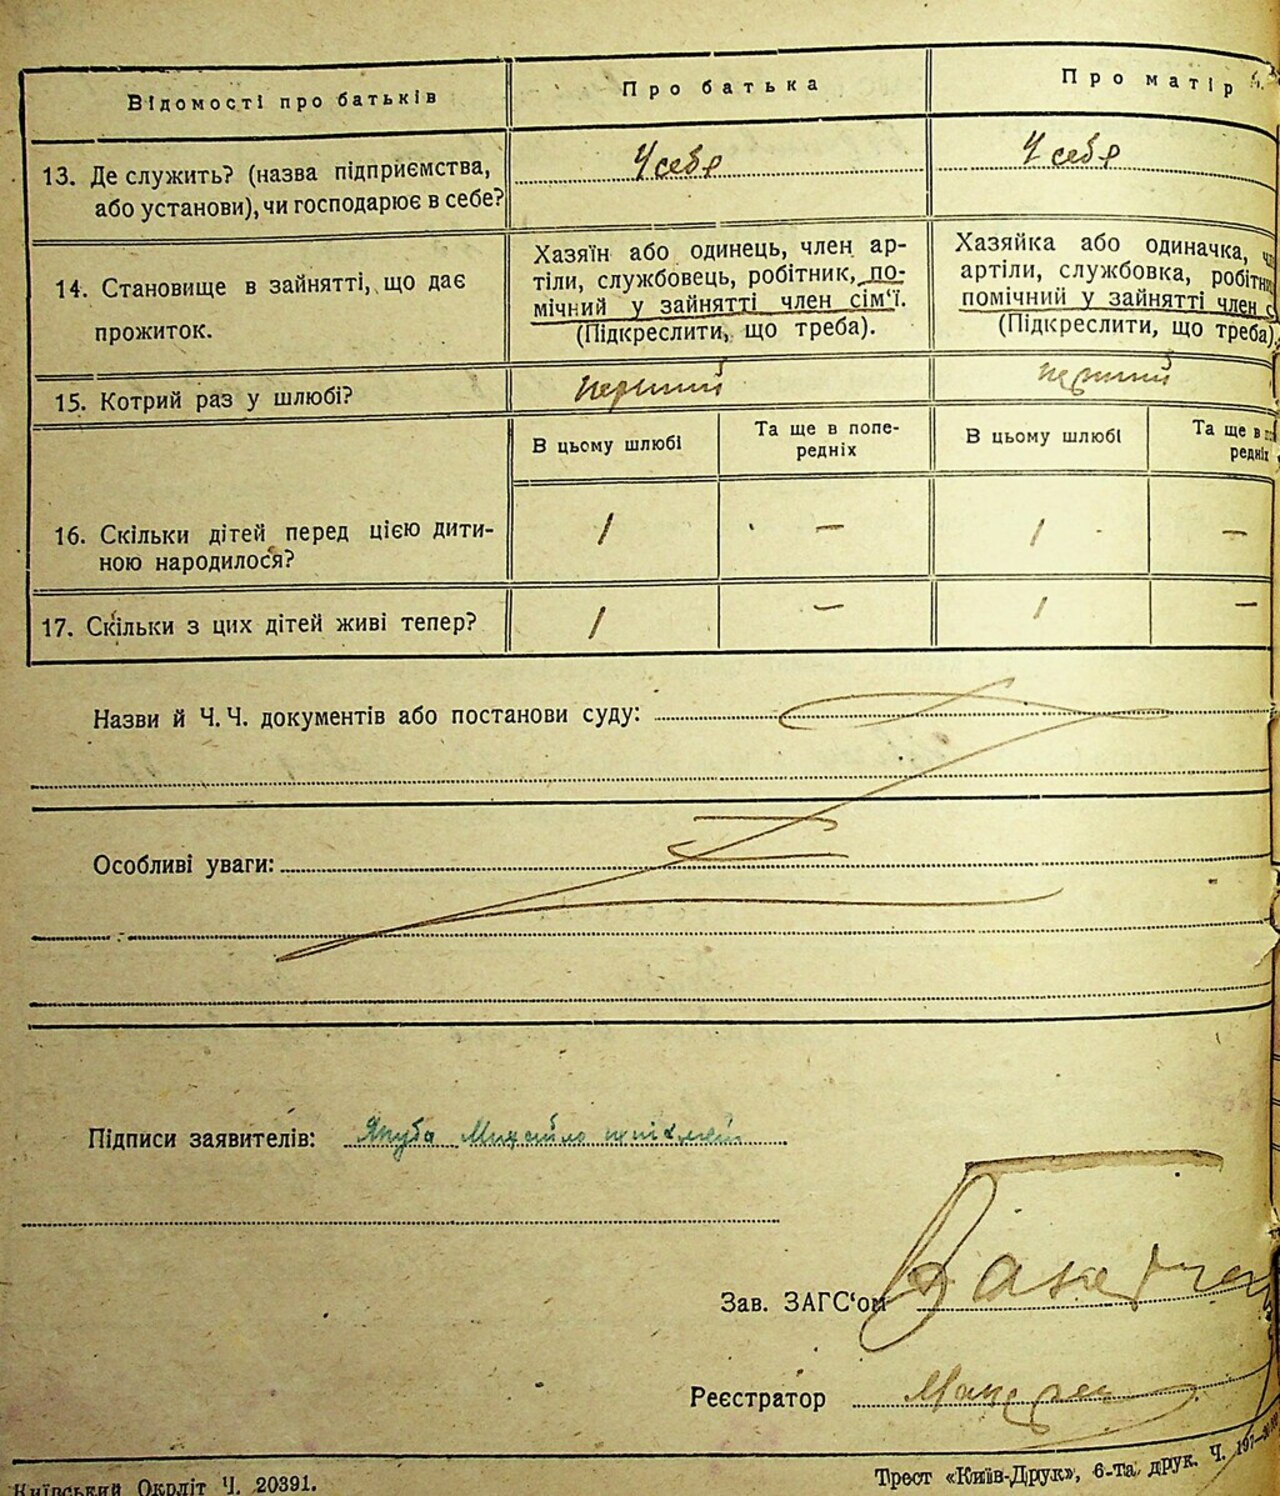 Відомості про батьків
Про батька
Про матір
13. Де служить? (назва підприємства,
або установи), чи господарює в себе?
У себе
У себе
14. Становище в зайнятті, що дає
прожиток.
Хазяїн або одинець, член ар-
тіли, службовець, робітник, по-
мічний у зайнятті член сім‘ї.
(Підкреслити, що треба).
Хазяйка або одиначка,
артіли, службовка, робітн
помічний у зайнятті член с
(Підкреслити, що треба)
15. Котрий раз у шлюбі?
перший
перший
В цьому шлюбі
Та ще в попе-
редніх
В цьому шлюбі
Та ще в
редніх
16. Скільки дітей перед цією дити-
ною народилося?
1
—
1
—
17. Скільки з цих дітей живі тепер?
1
—
1
—
Назви й Ч. Ч. документів або постанови суду:
Особливі уваги:
Підписи заявителів: Якуба Михайло
Зав. ЗАГС‘ом
Реєстратор
Київський Окрліт Ч. 20391.
Трест «Київ-Друк», 6-та друк. Ч. 197